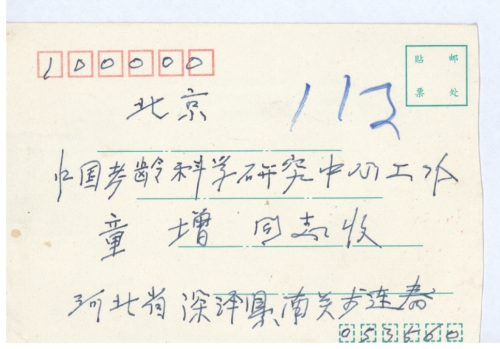 100000
贴 邮
票 处
北京
112
中国老龄科学研究中心工作
童增 同志收
河北省深泽县南关步连春
053560